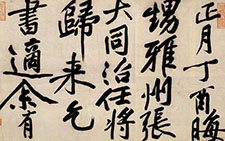 正月丁酉晦
甥雅州張
大同治任將
歸来乞
書適余有